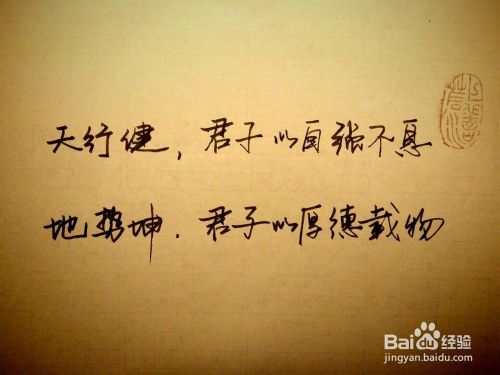 天行健，君子以自强不息
地势坤．君子以厚德载物
Baidu经验
jingyan.baidu.com